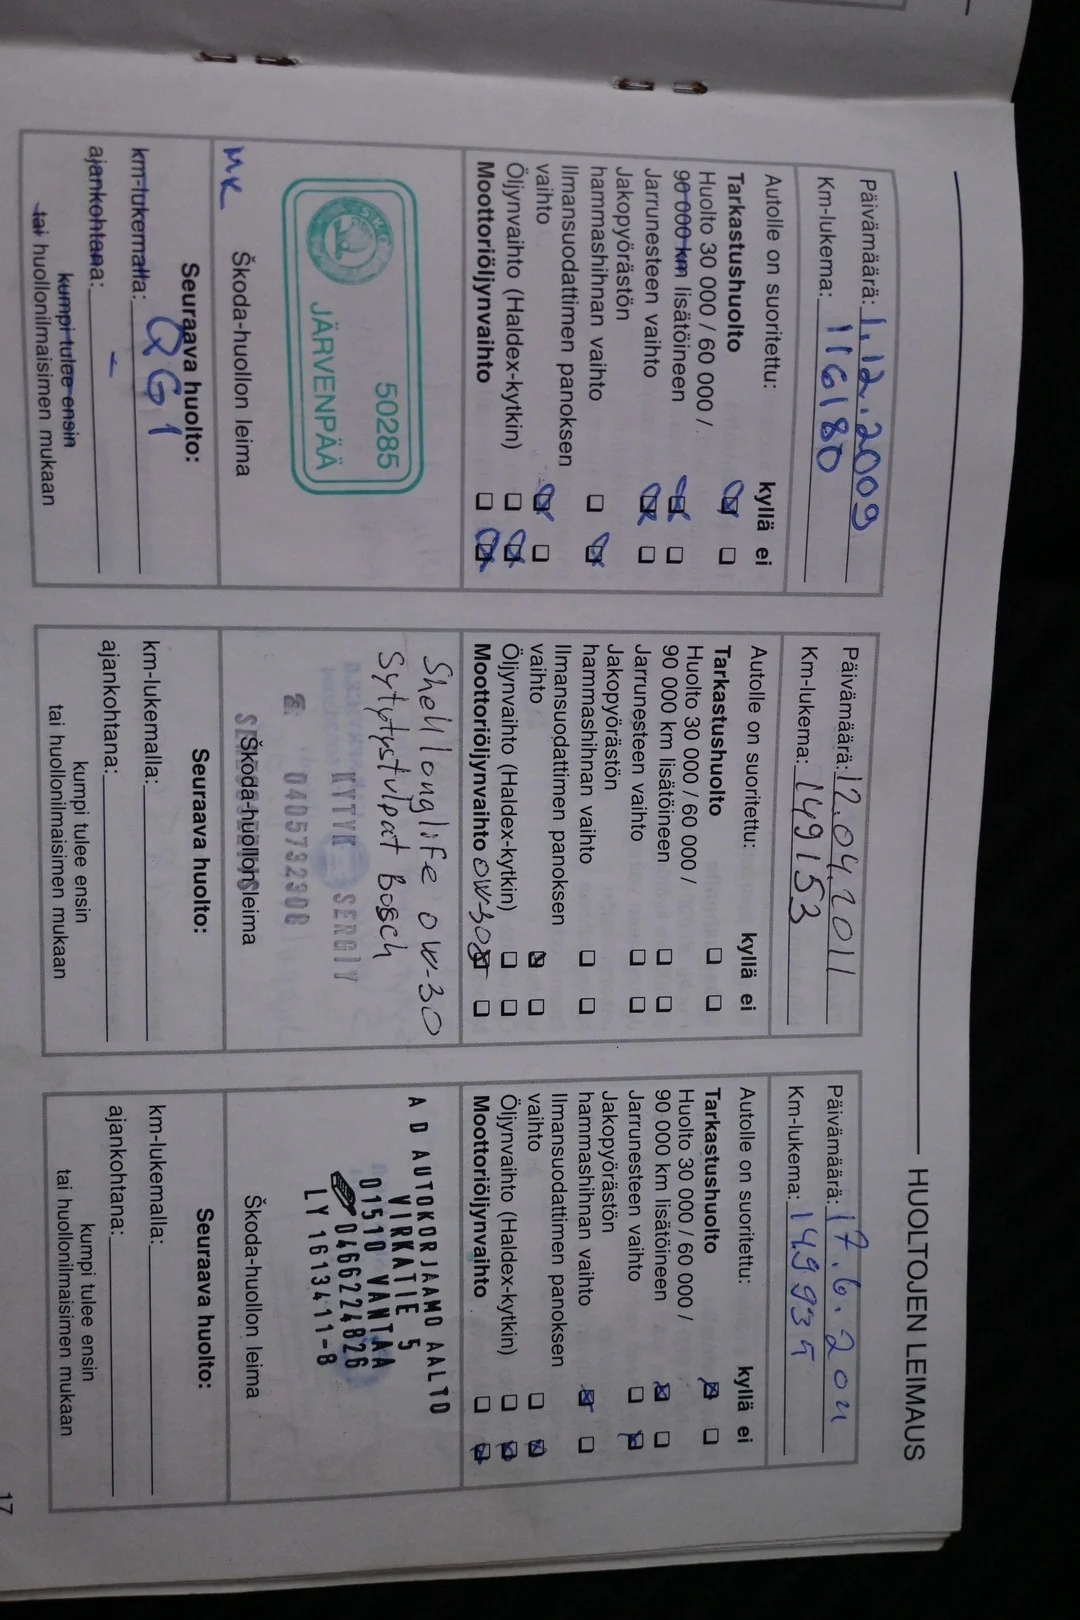 HUOLTOJEN LEIMAUS
Päivämäärä: 1.12.2009
Km-lukema: 116180
Autolle on suoritettu:
kyllä ei
Tarkastushuolto
Huolto 30 000 / 60 000 /
90 000 km lisätöineen
Jarrunesteen vaihto
Jakopyörästön
hammashihnan vaihto
Ilmansuodattimen panoksen
vaihto
Öljynvaihto (Haldex-kytkin)
Moottoriöljynvaihto
50285
JÄRVENPÄÄ
MK
Škoda-huollon leima
Seuraava huolto:
km-lukemalla: QG1
ajankohtana: -
kumpi tulee ensin
tai huollonilmaisimen mukaan
Päivämäärä: 12.04.2011
Km-lukema: 149153
Autolle on suoritettu:
kyllä ei
Tarkastushuolto
Huolto 30 000 / 60 000 /
90 000 km lisätöineen
Jarrunesteen vaihto
Jakopyörästön
hammashihnan vaihto
Ilmansuodattimen panoksen
vaihto
Öljynvaihto (Haldex-kytkin)
Moottoriöljynvaihto 0W-30
Shell longlife 0W-30
Sytytystulpat Bosch
KYTYK SERGIY
☎ 0405732908
Škoda-huollon leima
Seuraava huolto:
km-lukemalla:
ajankohtana:
kumpi tulee ensin
tai huollonilmaisimen mukaan
Päivämäärä: 17.6.2011
Km-lukema: 149935
Autolle on suoritettu:
kyllä ei
Tarkastushuolto
Huolto 30 000 / 60 000 /
90 000 km lisätöineen
Jarrunesteen vaihto
Jakopyörästön
hammashihnan vaihto
Ilmansuodattimen panoksen
vaihto
Öljynvaihto (Haldex-kytkin)
Moottoriöljynvaihto
A D AUTOKORJAAMO AALTO
VIRKATIE 5
01510 VANTAA
0466224826
LY 1613411-8
Škoda-huollon leima
Seuraava huolto:
km-lukemalla:
ajankohtana:
kumpi tulee ensin
tai huollonilmaisimen mukaan
17